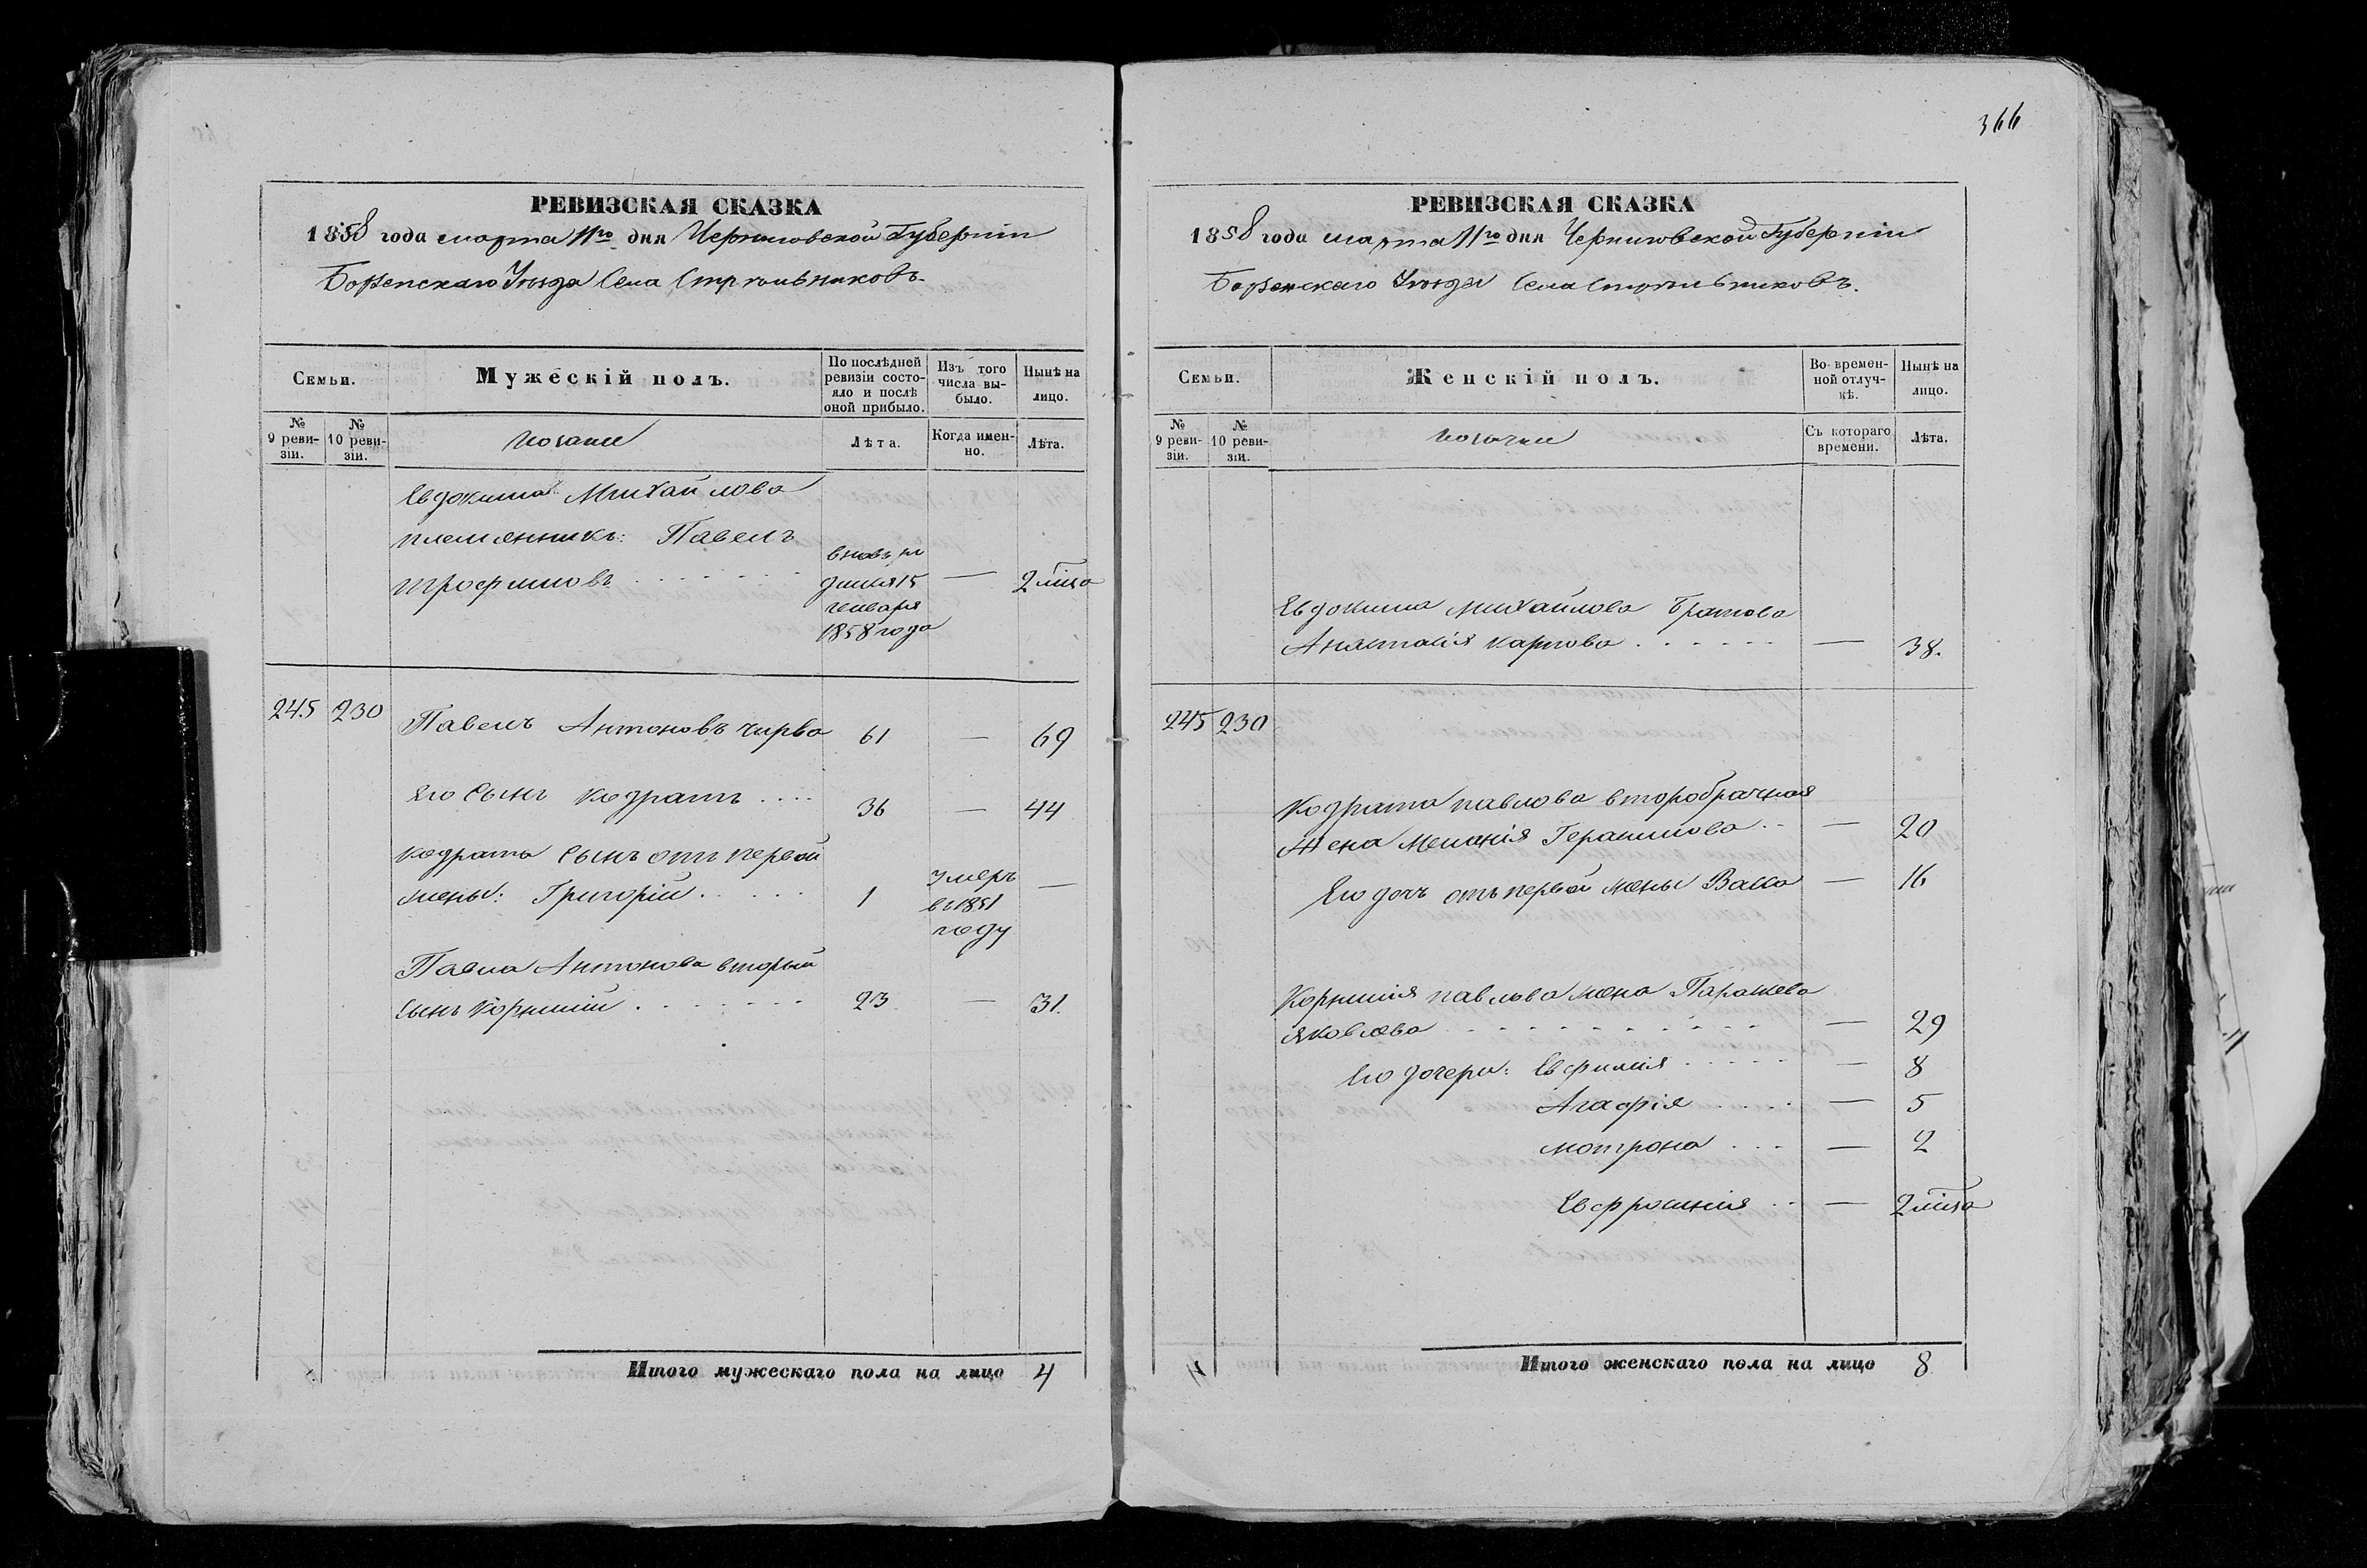 366
РЕВИЗСКАЯ СКАЗКА
1858 года марта 11го дня Черниговской Губерніи
Борзенскаго Уѣзда Села Стрѣльниковъ.
Семьи.
Мужескій полъ.
По послѣдней ревизіи состояло и послѣ оной прибыло.
Изъ того числа выбыло.
Нынѣ на лицо.
№ 9 ревизіи.
№ 10 ревизіи.
Козаки
Лѣта.
Когда именно.
Лѣта.
Евдокима Михайлова
племянникъ: Павелъ
Трофимовъ . . . . . . . вновь ро
дился 15 — 2 м̃ца
генваря
1858 года
245 230 Павелъ Антоновъ Чирва 61 — 69
Его Сынъ Кодратъ .... 36 — 44
Кодрата Сынъ отъ первой
жены: Григорій . . . . . 1 умеръ —
въ 1851
году
Павла Антонова вторый
сынъ Корнилій . . . . . . . 23 — 31.
Итого мужескаго пола на лицо 4
РЕВИЗСКАЯ СКАЗКА
1858 года марта 11го дня Черниговской Губерніи
Борзенскаго Уѣзда Села Стрѣльниковъ.
Семьи.
Женскій полъ.
Во временной отлучкѣ.
Нынѣ на лицо.
№ 9 ревизіи.
№ 10 ревизіи.
Козачки
Съ котораго времени.
Лѣта.
Евдокима Михайлова Братова
Анастасія Карпова . . . . . . — 38.
245 230
Кодрата Павлова второбрачная
Жена Меланія Герасимова .. — 20
Его дочь отъ первой жены Васса — 16
Корнилія Павлова жена Параскева
Яковлева . . . . . . . . . . . — 29
Его дочери: Евфимія . . . . . — 8
Агафія . . . . — 5
Мотрона . . . — 2
Евфросинія .. — 2 м̃ца
Итого женскаго пола на лицо 8